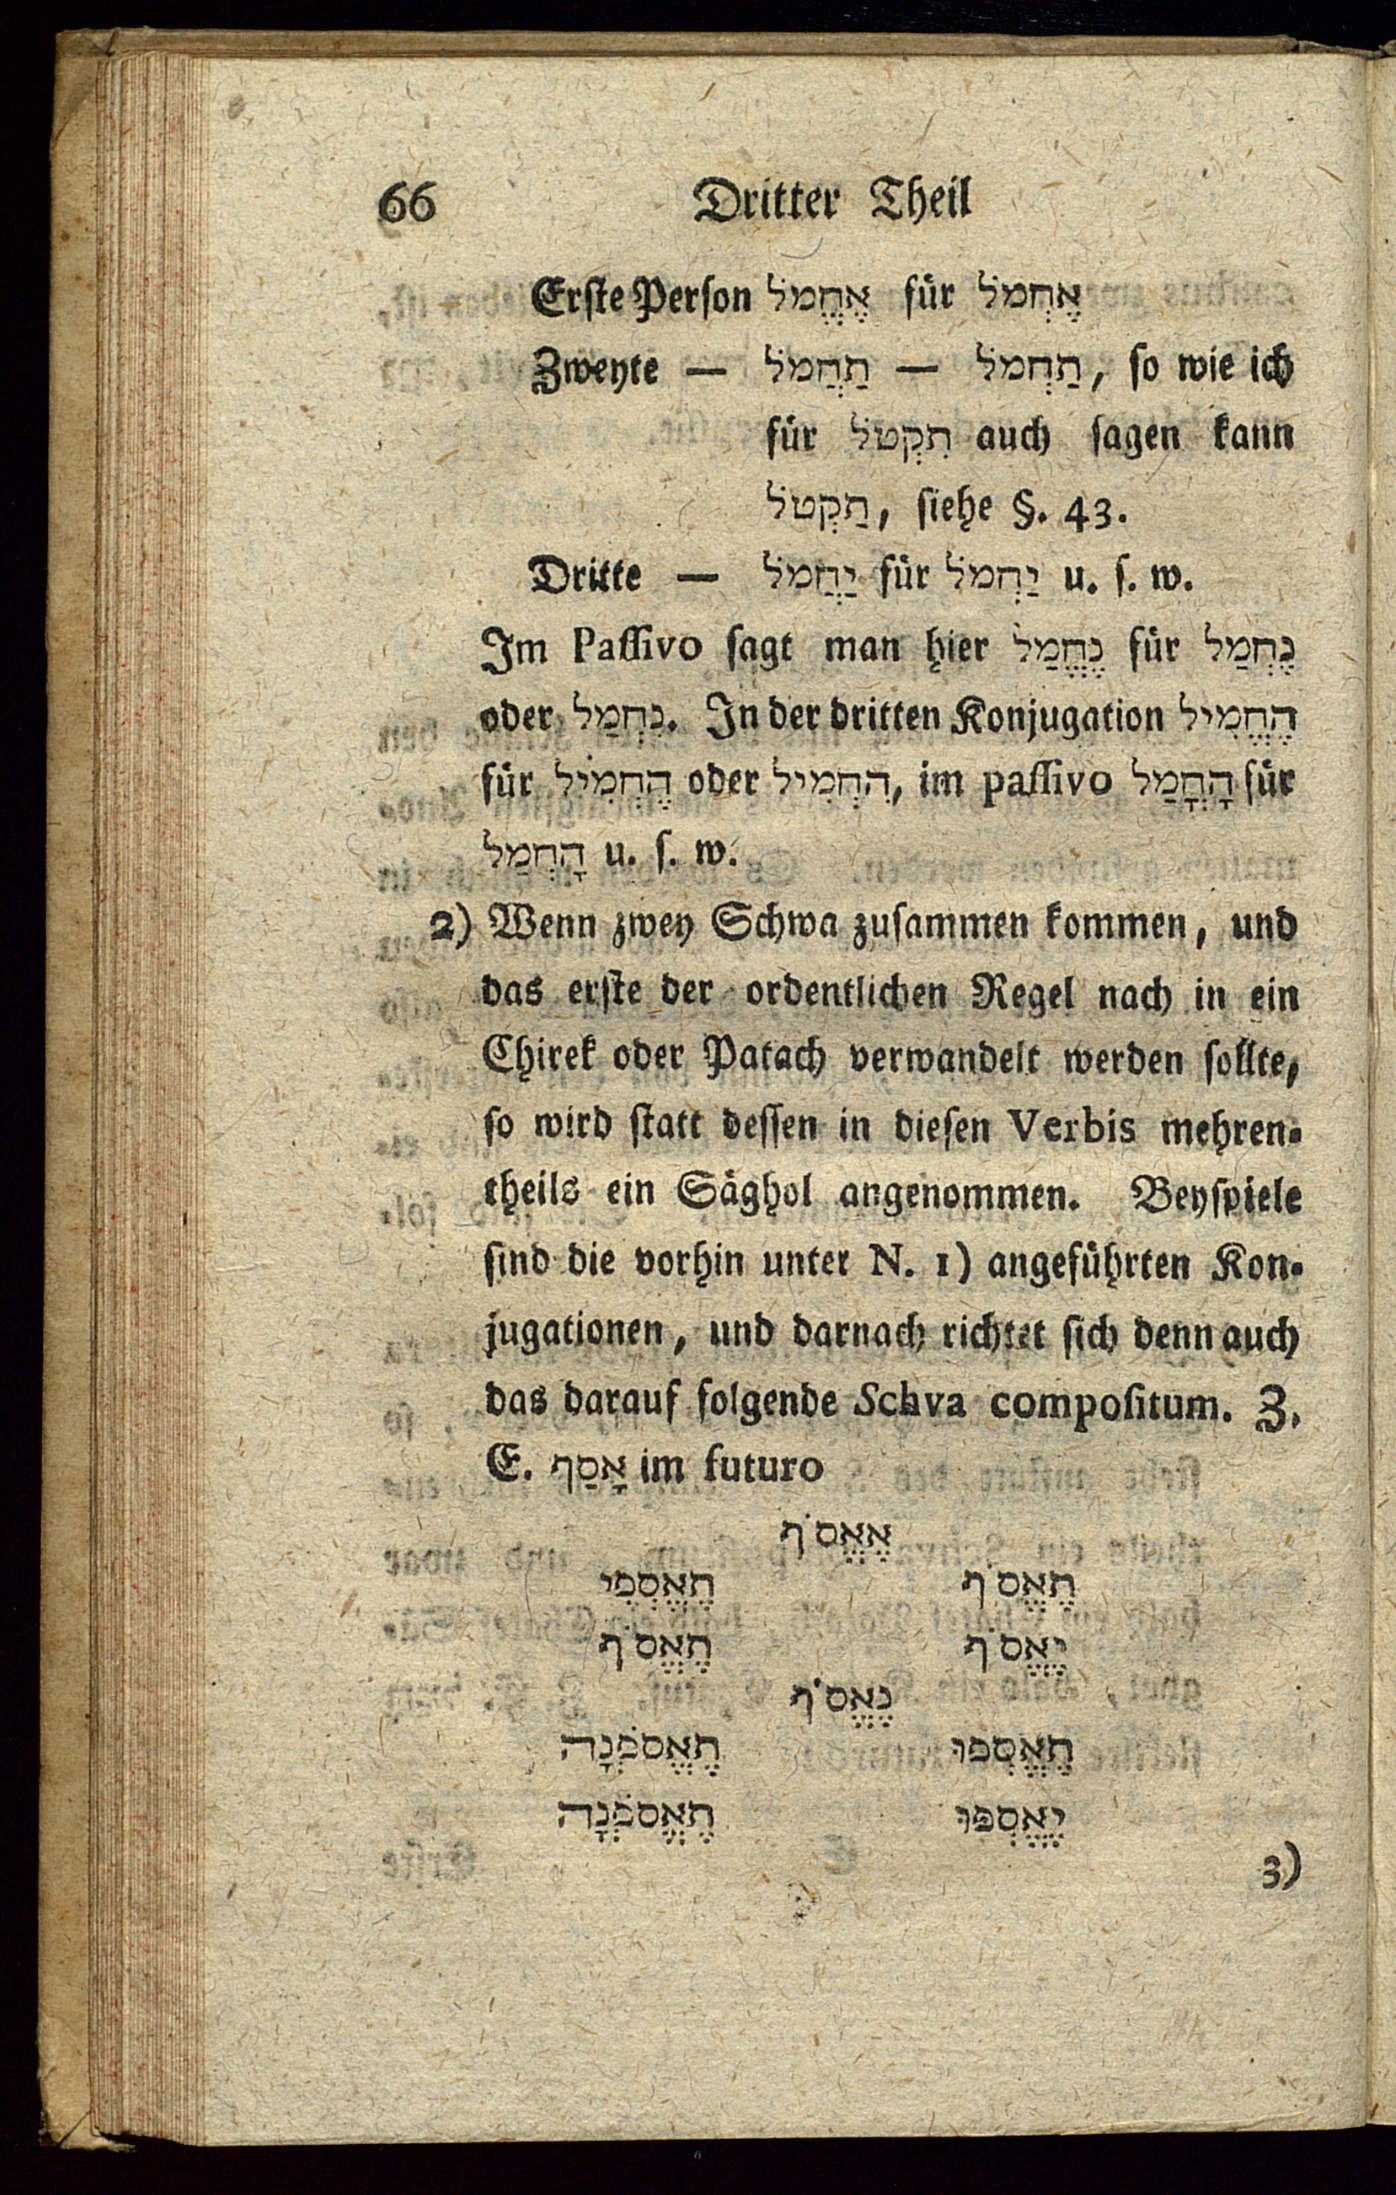 66 Dritter Theil
Erste Person אֶחֱמֹל für אֶחְמֹל
Zweyte — תַחֲמֹל — תַחְמֹל, so wie ich
für תִקְטֹל auch sagen kann
תַקְטֹל, siehe §. 43.
Dritte — יַחֲמֹל für יַחְמֹל u. s. w.
Im Passivo sagt man hier נֶחֱמַל für נֶחְמַל
oder נִחְמַל. In der dritten Konjugation הֶחֱמִיל
für הֶחְמִיל oder הִחְמִיל, im passivo הָחֳמַל für
הָחְמַל u. s. w.
2) Wenn zwey Schwa zusammen kommen, und
das erste der ordentlichen Regel nach in ein
Chirek oder Patach verwandelt werden sollte,
so wird statt dessen in diesen Verbis mehren-
theils ein Säghol angenommen. Beyspiele
sind die vorhin unter N. 1) angeführten Kon-
jugationen, und darnach richtet sich denn auch
das darauf folgende Schva compositum. Z.
E. אָסַף im futuro
אֶאֱסֹף
תֶאֱסֹף תֶאֱסְפִי
יֶאֱסֹף תֶאֱסֹף
נֶאֱסֹף
תֶאֱסְפוּ תֶאֱסֹפְנָה
יֶאֱסְפּוּ תֶאֱסֹפְנָה
3)